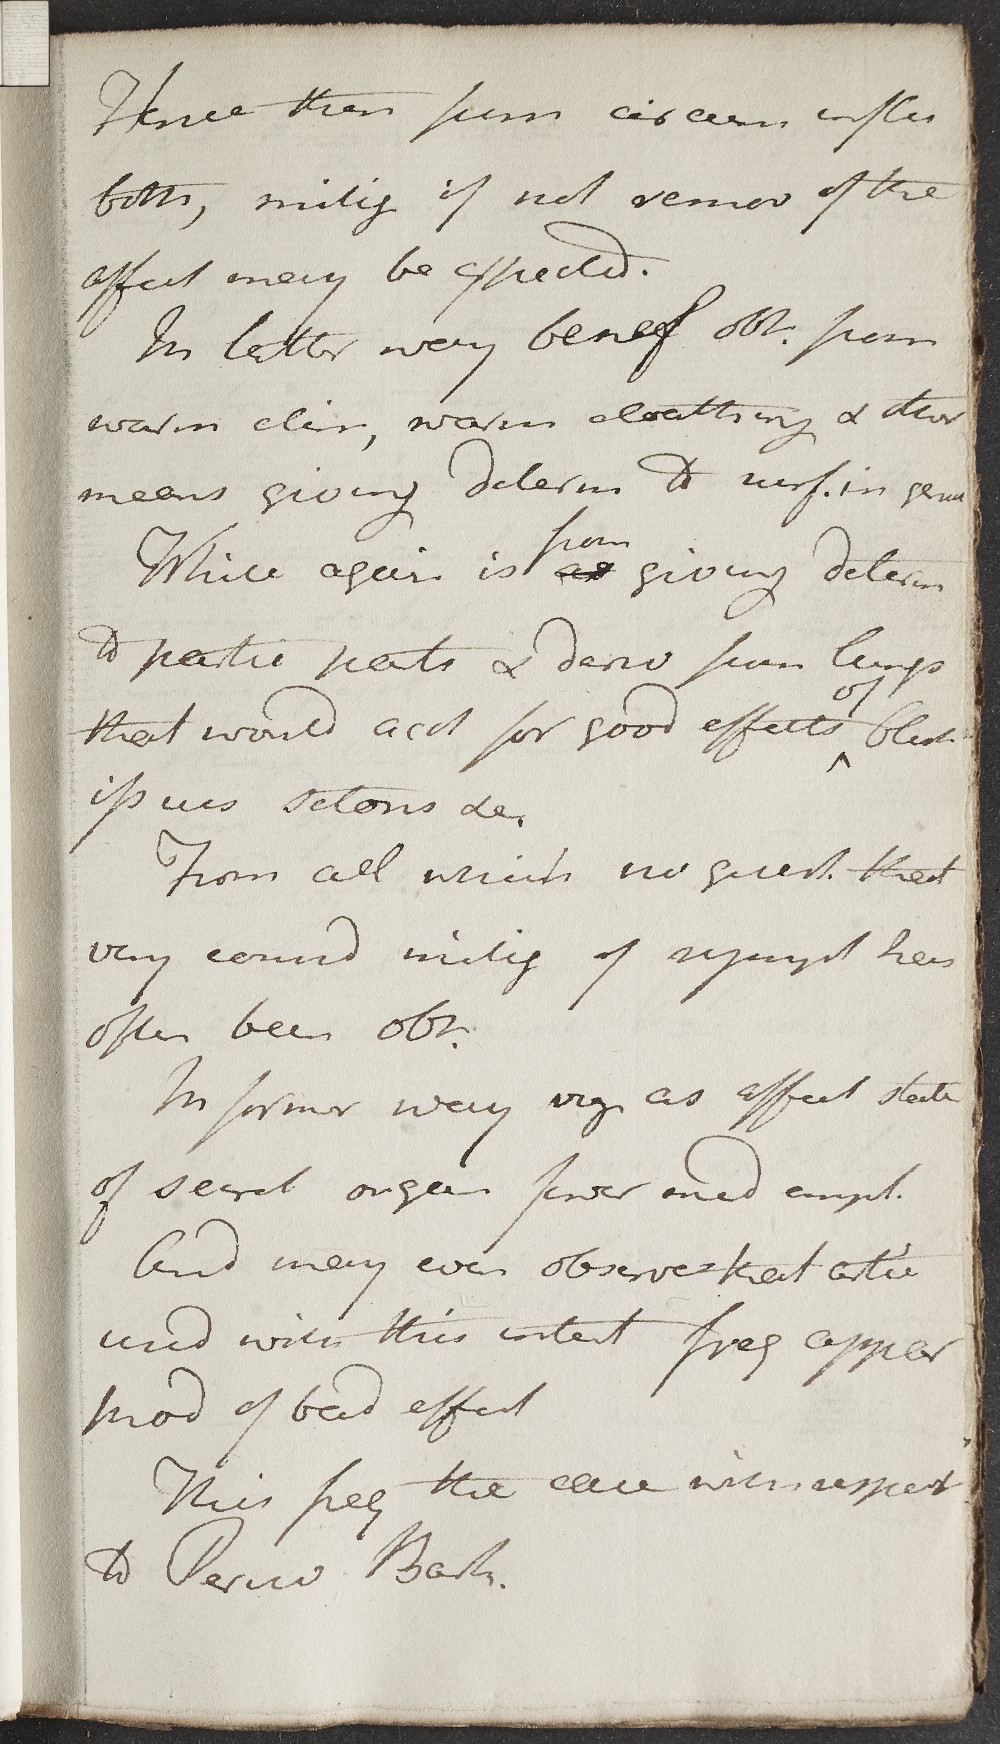 Hence then from circum influ
both, mitig if not remov of the
affect may be expected.
In latter way benef obt. from
warm clim, warm cloathing & other
means giving determ to surf. in gener
While again is from as giving determ
to partic parts & deriv from lungs
that would acct for good effects of blist
issues setons &c.
From all which no quest. that
very consid mitig of sympt has
often been obt.
In former way viz as affect state
of secret organ fewer med empl.
And may even observe that artic
used with this intent freq appear
prod of bad effect
This freq the case with respect
to Peruv Bark.